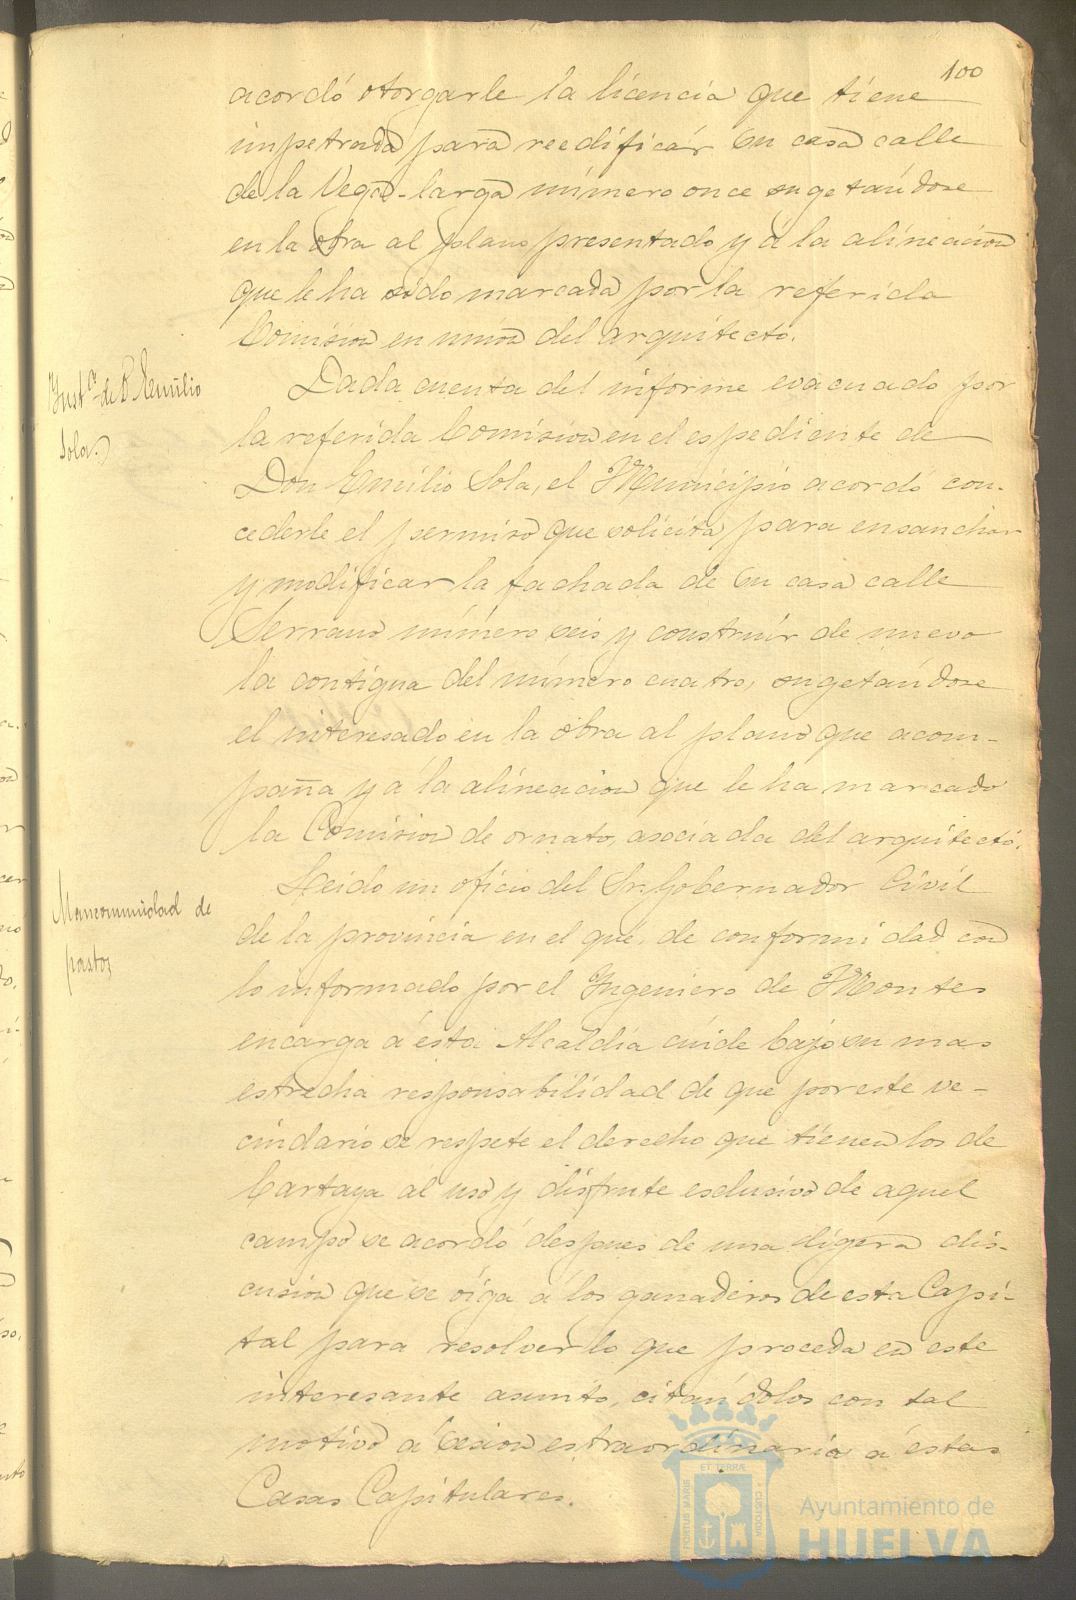 100
acordó otorgarle la licencia que tiene
impetrada para reedificár su casa calle
de la Vega-larga número once sugetándose
en la obra al plano presentado y á la alineacion
que le ha sido marcada por la referida
Comision en union del arquitecto.
Inst.ª de D. Emilio
Sola.
Dada cuenta del informe evacuado por
la referida Comision en el espediente de
Don Emilio Sola, el Municipio acordó con-
cederle el permiso que solicita para ensanchar
y modificar la fachada de su casa calle
Serrano número seis y construir de nuevo
la contigua del número cuatro, sugetándose
el interesado en la obra al plano que acom-
paña y á la alineacion que le ha marcado
la Comision de ornato, asociada del arquitecto.
Mancomunidad de
pastos
Leido un oficio del Sr. Gobernador Civil
de la provincia en el que, de conformidad con
lo informado por el Ingeniero de Montes
encarga á ésta Alcaldía cuide bajo su mas
estrecha responsabilidad de que por este ve-
cindario se respete el derecho que tienen los de
Cartaya al uso y disfrute esclusivo de aquel
campo se acordó despues de una ligera dis-
cusion que se óiga á los ganaderos de esta Capi-
tal para resolver lo que proceda en este
interesante asunto, citándolos con tal
motivo á sesion estraordinaria á éstas
Casas Capitulares.
PORTUS MARIS
ET TERRÆ
CUSTODIA
Ayuntamiento de
HUELVA